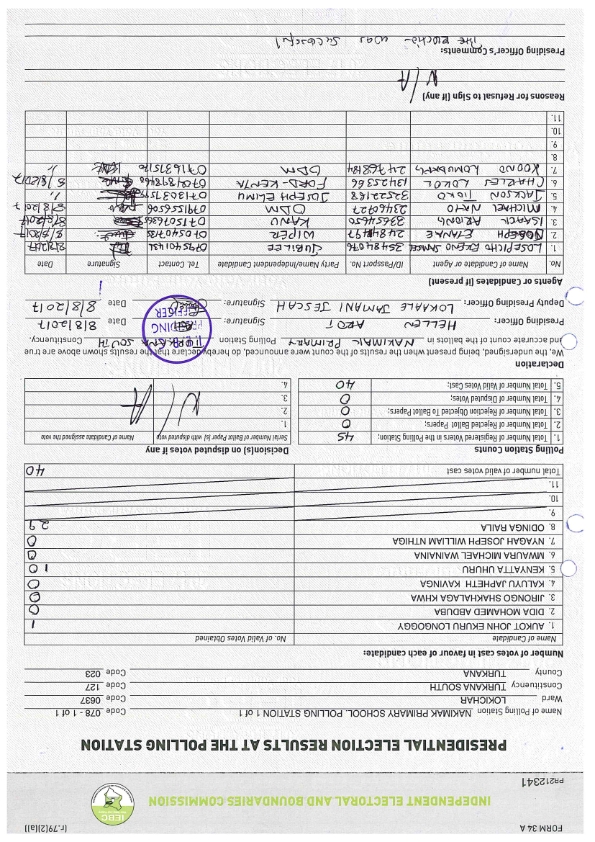 FORM 34 A (r.79(2)(a))
INDEPENDENT ELECTORAL AND BOUNDARIES COMMISSION
IEBC
PR212341
PRESIDENTIAL ELECTION RESULTS AT THE POLLING STATION
Name of Polling Station NAKIMAK PRIMARY SCHOOL POLLING STATION 1 of 1 Code 078 - 1 of 1
Ward LOKICHAR Code 0637
Constituency TURKANA SOUTH Code 127
County TURKANA Code 023
Number of votes cast in favour of each candidate:
Name of Candidate No. of Valid Votes Obtained
1. AUKOT JOHN EKURU LONGOGGY 1
2. DIDA MOHAMED ABDUBA 0
3. JIRONGO SHAKHALAGA KHWA 0
4. KALUYU JAPHETH KAVINGA 0
5. KENYATTA UHURU 10
6. MWAURA MICHAEL WAINAINA 0
7. NYAGAH JOSEPH WILLIAM NTHIGA 0
8. ODINGA RAILA 29
9.
10.
11.
Total number of valid votes cast 40
Polling Station Counts
1. Total Number of Registered Voters in the Polling Station; 45
2. Total Number of Rejected Ballot Papers; 0
3. Total Number of Rejection Objected To Ballot Papers; 0
4. Total Number of Disputed Votes; 0
5. Total Number of Valid Votes Cast; 40
Decision(s) on disputed votes if any
Serial Number of Ballot Paper (s) with disputed vote Name of Candidate assigned the vote
1.
2.
3.
4.
N/A
Declaration
We, the undersigned, being present when the results of the count were announced, do hereby declare that the results shown above are true
and accurate count of the ballots in NAKIMAK PRIMARY Polling Station TURKANA SOUTH Constituency,
Presiding Officer: HELLEN APOT Signature: Date 8/8/2017
Deputy Presiding Officer: LOKAALE JAMANI JESCAH Signature: Date 8/8/2017
Agents or Candidates (if present)
No. Name of Candidate or Agent ID/Passport No. Party Name/Independent Candidate Tel. Contact Signature Date
1. LOSEPICHO SAMUEL JUBILEE 8/8/2017
2. JOSEPH WIPER
3. ISAACK KANU
4. MICHAEL NATO 23246927 ODM
5. JACKSON 32522168 JOSEPH ELIMU
6. CHARLES LOKOL FORD-KENYA 8/8/2017
7. KOONO 24768184 ODM
8.
9.
10.
11.
Reasons for Refusal to Sign (if any)
N/A
Presiding Officer's Comments:
The election was successful